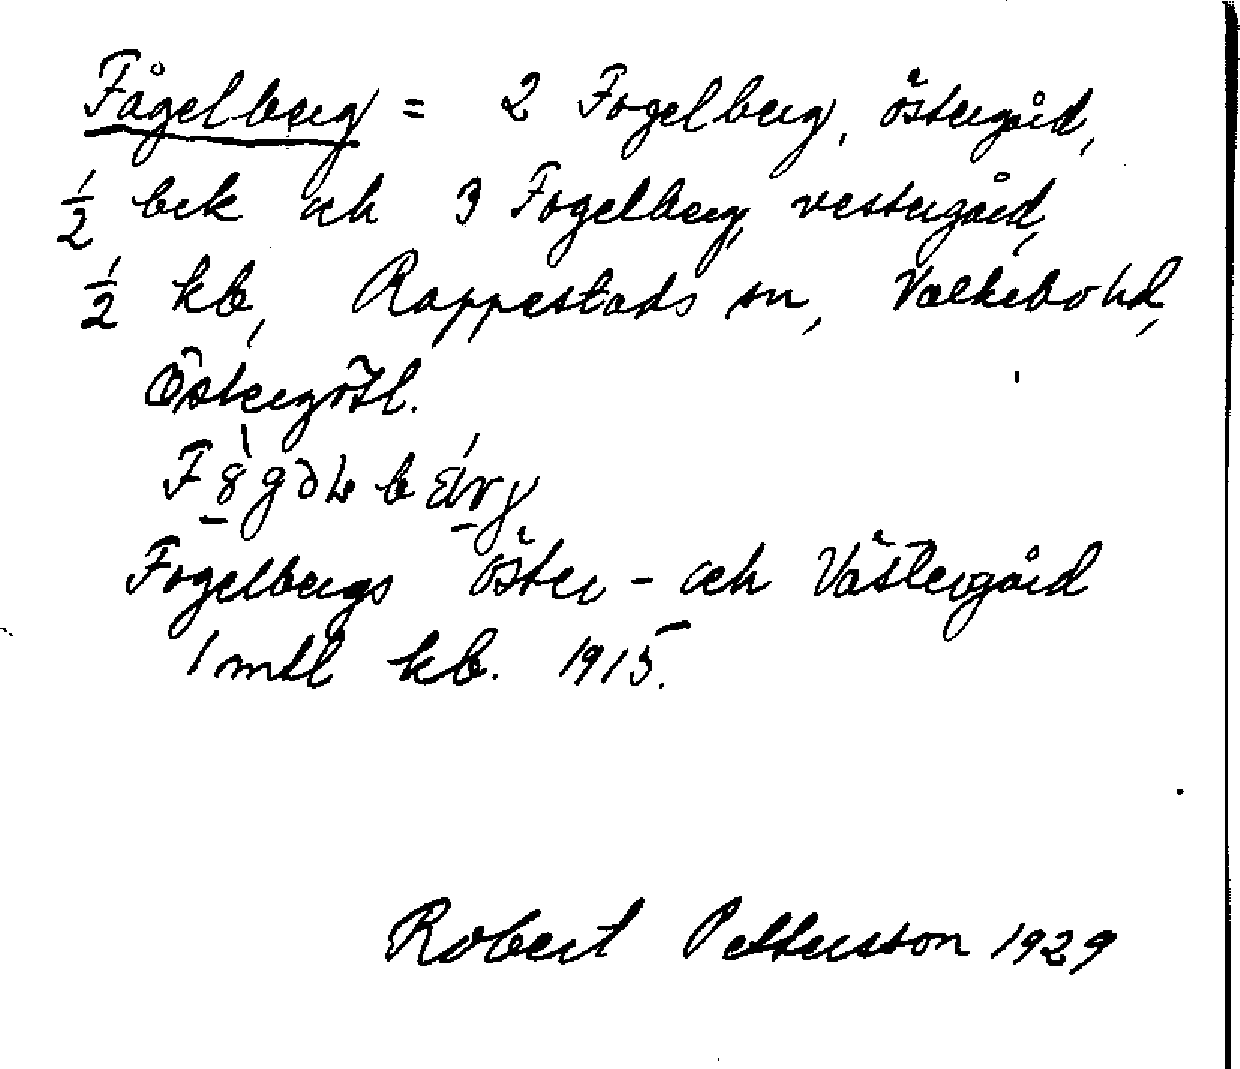 Fågelberg = 2 Fogelberg, östergård,
½ bek och 3 Fogelberg, vestergård,
½ kb, Rappestads sn, Valkebo hd,
Östergötl.
Fogelbergs öster- och Västergård
1 mtl kb. 1915.
Robert Pettersson 1929